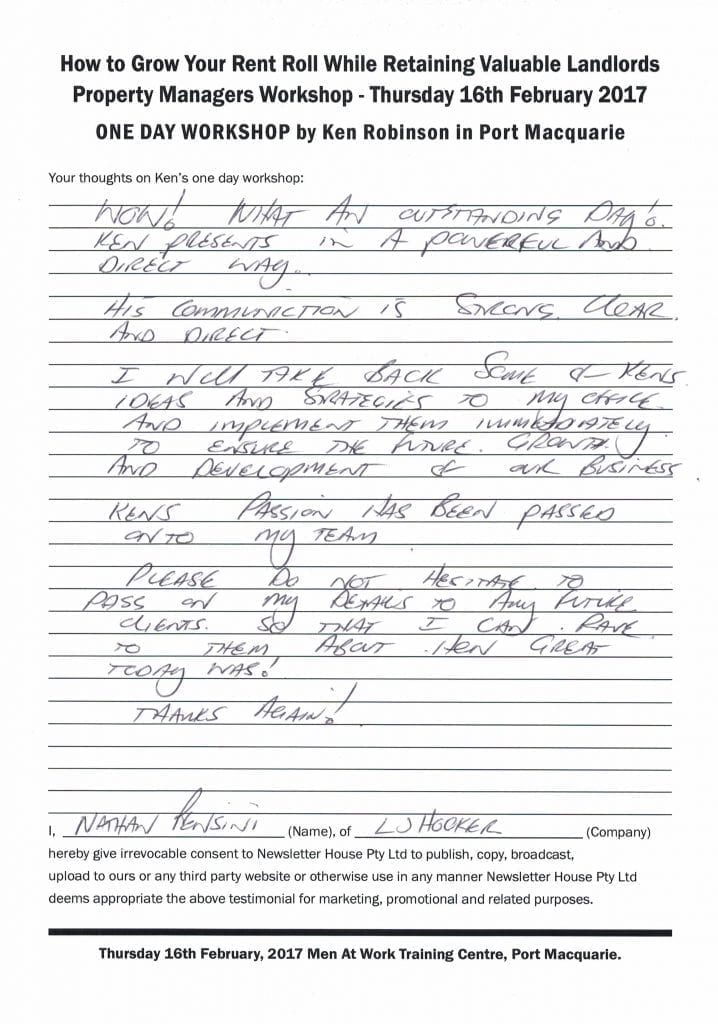 How to Grow Your Rent Roll While Retaining Valuable Landlords
Property Managers Workshop - Thursday 16th February 2017
ONE DAY WORKSHOP by Ken Robinson in Port Macquarie
Your thoughts on Ken's one day workshop:
WOW! WHAT AN OUTSTANDING DAY!
KEN PRESENTS IN A POWERFUL AND
DIRECT WAY..
HIS COMMUNICTION IS STRONG, CLEAR,
AND DIRECT.
I WILL TAKE BACK SOME OF KENS
IDEAS AND STRATEGIES TO MY OFFICE
AND IMPLEMENT THEM IMMEDIATELY
TO ENSURE THE FUTURE. GROWTH.
AND DEVELOPMENT OF OUR BUSINESS
KENS PASSION HAS BEEN PASSED
ONTO MY TEAM
PLEASE DO NOT HESITATE TO
PASS ON MY DETAILS TO ANY FUTURE
CLIENTS. SO THAT I CAN RAVE
TO THEM ABOUT HOW GREAT
TODAY WAS!
THANKS AGAIN!
I, NATHAN PENSINI (Name), of LJ HOOKER (Company)
hereby give irrevocable consent to Newsletter House Pty Ltd to publish, copy, broadcast,
upload to ours or any third party website or otherwise use in any manner Newsletter House Pty Ltd
deems appropriate the above testimonial for marketing, promotional and related purposes.
Thursday 16th February, 2017 Men At Work Training Centre, Port Macquarie.